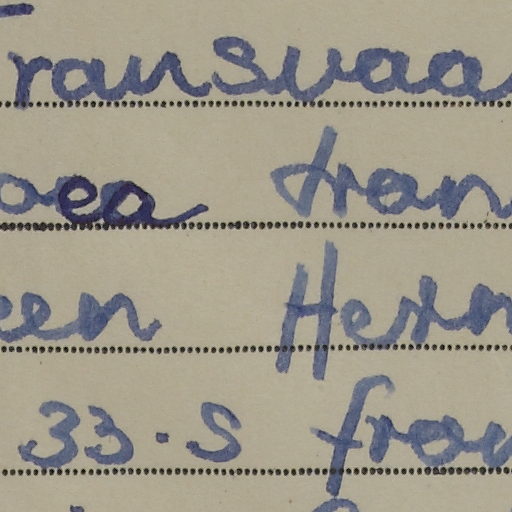 Transvaa
oea tran
een Herm
33.S fro